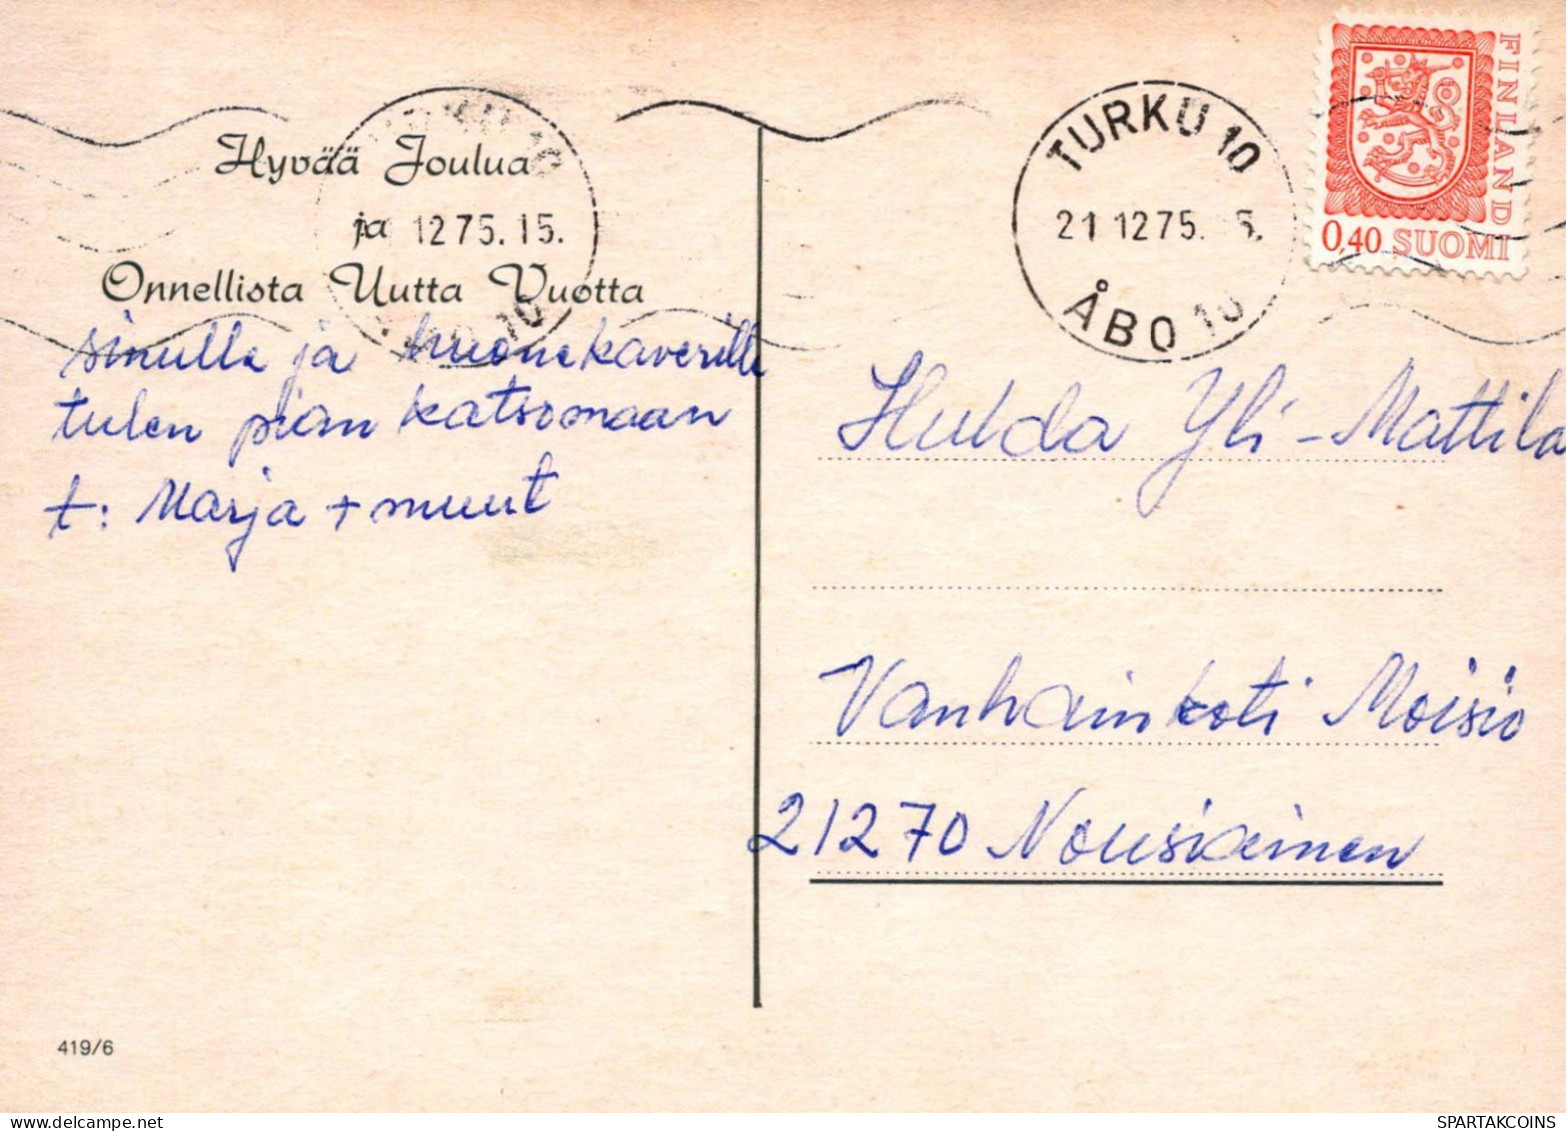 Hyvää Joulua
ja
Onnellista Uutta Vuotta
sinulle ja huonekaverille
tulen pian katsomaan
t: Marja + muut
419/6
12 75. 15.
TURKU 10
21 12 75. 5.
ÅBO 10
FINLAND
0,40 SUOMI
Hulda Yli-Mattila
Vanhainkoti Moisio
21270 Nousiainen
SPARTAKCOINS